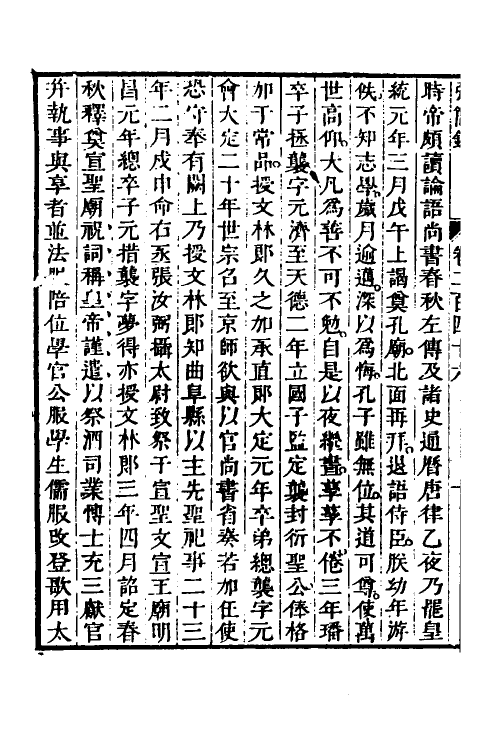 時帝頗讀論語尚書春秋左傳及諸史通曆唐律乙夜乃罷皇
統元年三月戊午上謁奠孔廟北面再拜退語侍臣朕幼年游
佚不知志學歲月逾邁深以爲悔孔子雖無位其道可尊使萬
世高仰大凡爲善不可不勉自是以夜繼晝孳孳不倦三年璠
卒子拯襲字元濟至天德二年立國子監定襲封衍聖公俸格
加于常品授文林郞久之加承直郞大定元年卒弟總襲字元
會大定二十年世宗名至京師欲與以官尚書省奏若加任使
恐守奉有闕上乃授文林郞知曲阜縣以主先聖祀事二十三
年二月戊申命右丞張汝弼攝太尉致祭于宣聖文宣王廟明
昌元年總卒子元措襲字夢得亦授文林郞三年四月詔定春
秋釋奠宣聖廟祝詞稱皇帝謹遣以祭酒司業博士充三獻官
幷執事與享者並法服陪位學官公服學生儒服改登歌用太
卷二百四十六